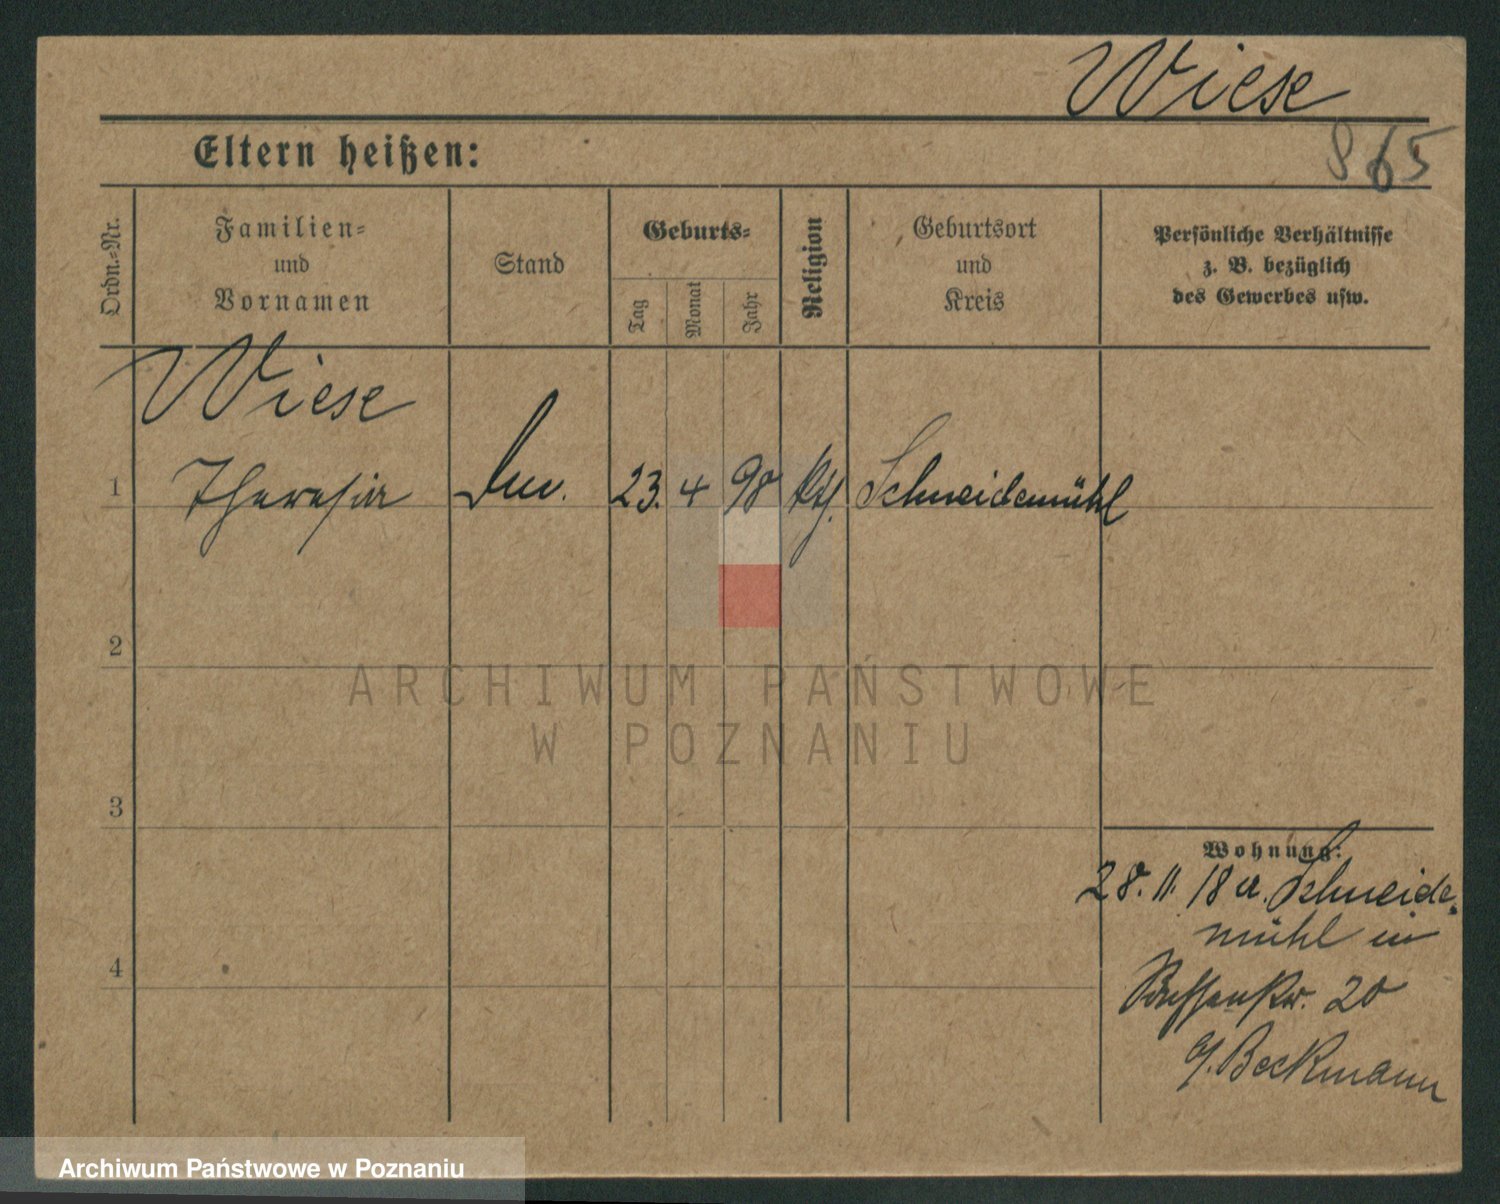 Wiese
865
Eltern heißen:
Ordn.-Nr.
Familien-
und
Vornamen
Stand
Geburts-
Tag
Monat
Jahr
Religion
Geburtsort
und
Kreis
Persönliche Verhältnisse
z. B. bezüglich
des Gewerbes usw.
Wiese
1 Theresia 23. 4 98 kth. Schneidemühl
2
ARCHIWUM PAŃSTWOWE
W POZNANIU
3
Wohnung:
28. 11. 18 a. Schneide-
mühl in
4
20
b/. Beckmann
Archiwum Państwowe w Poznaniu